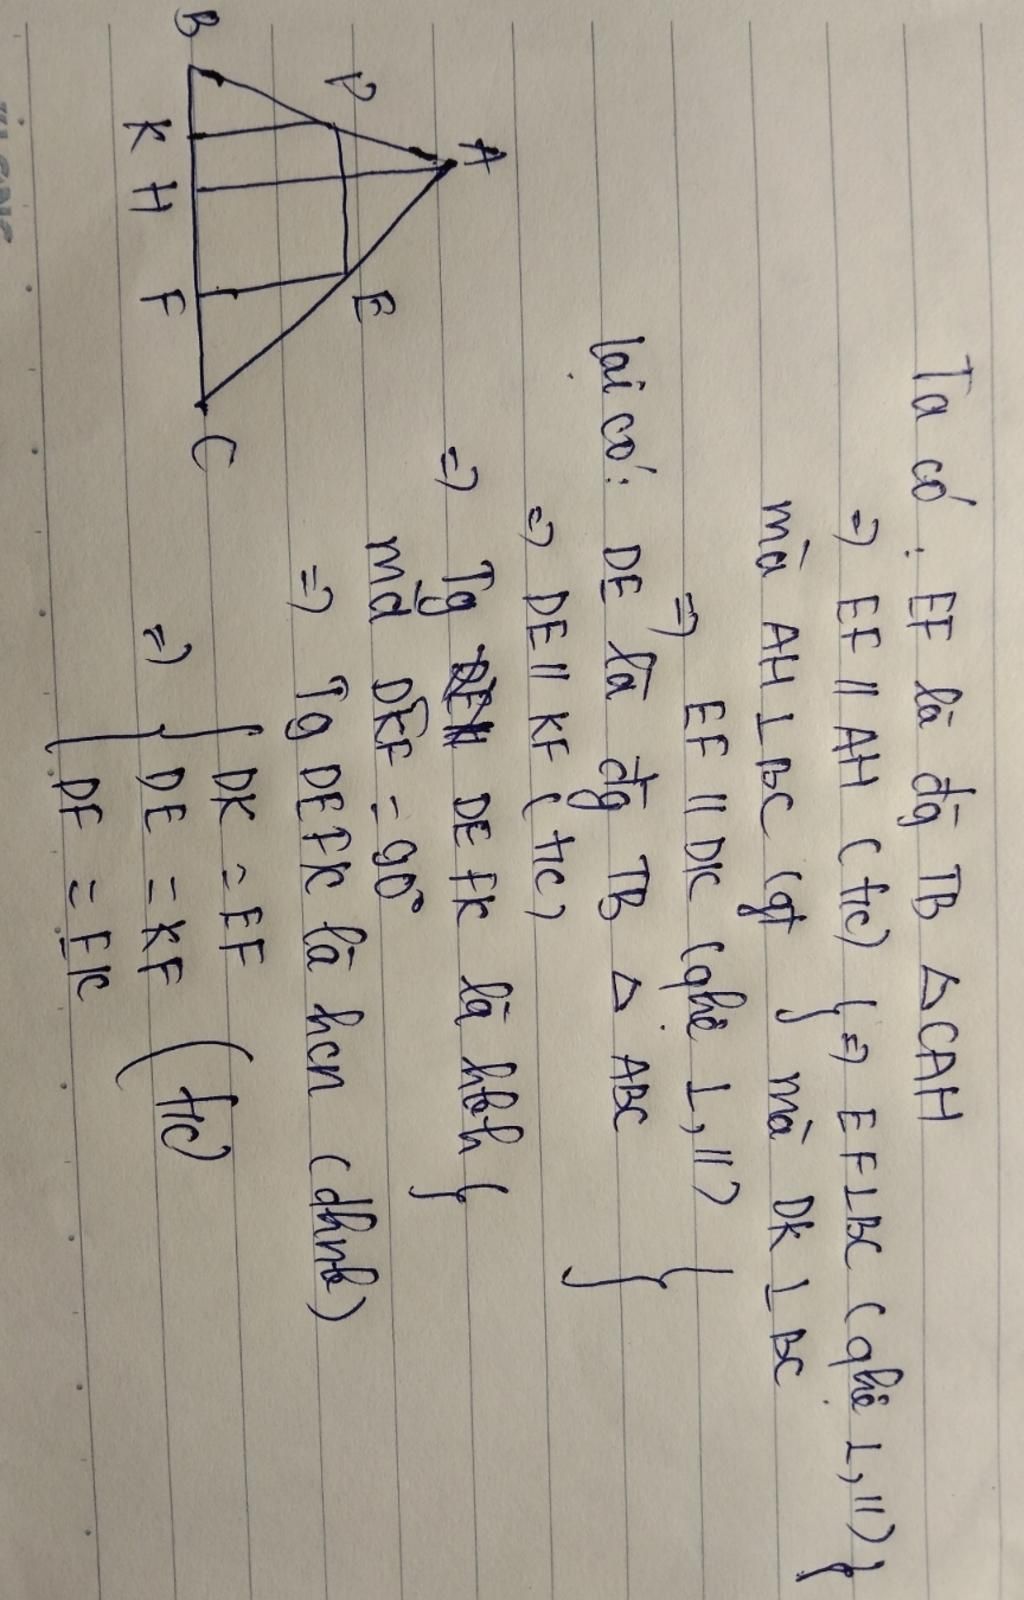 Ta có : EF là đg TB △CAH
=> EF // AH (t/c) } => EF⊥BC (qhệ ⊥, //) }
mà AH ⊥ BC (gt } mà DK ⊥ BC
=> EF // DK (qhệ ⊥, //) }
lại có: DE là đg TB △ ABC
=> DE // KF (t/c)
=> Tg DEFK là hbh }
mà DKF = 90°
=> Tg DEFK là hcn (dhnb)
DK = EF
=> { DE = KF (t/c)
DF = EK
A
D
E
B
K
H
F
C